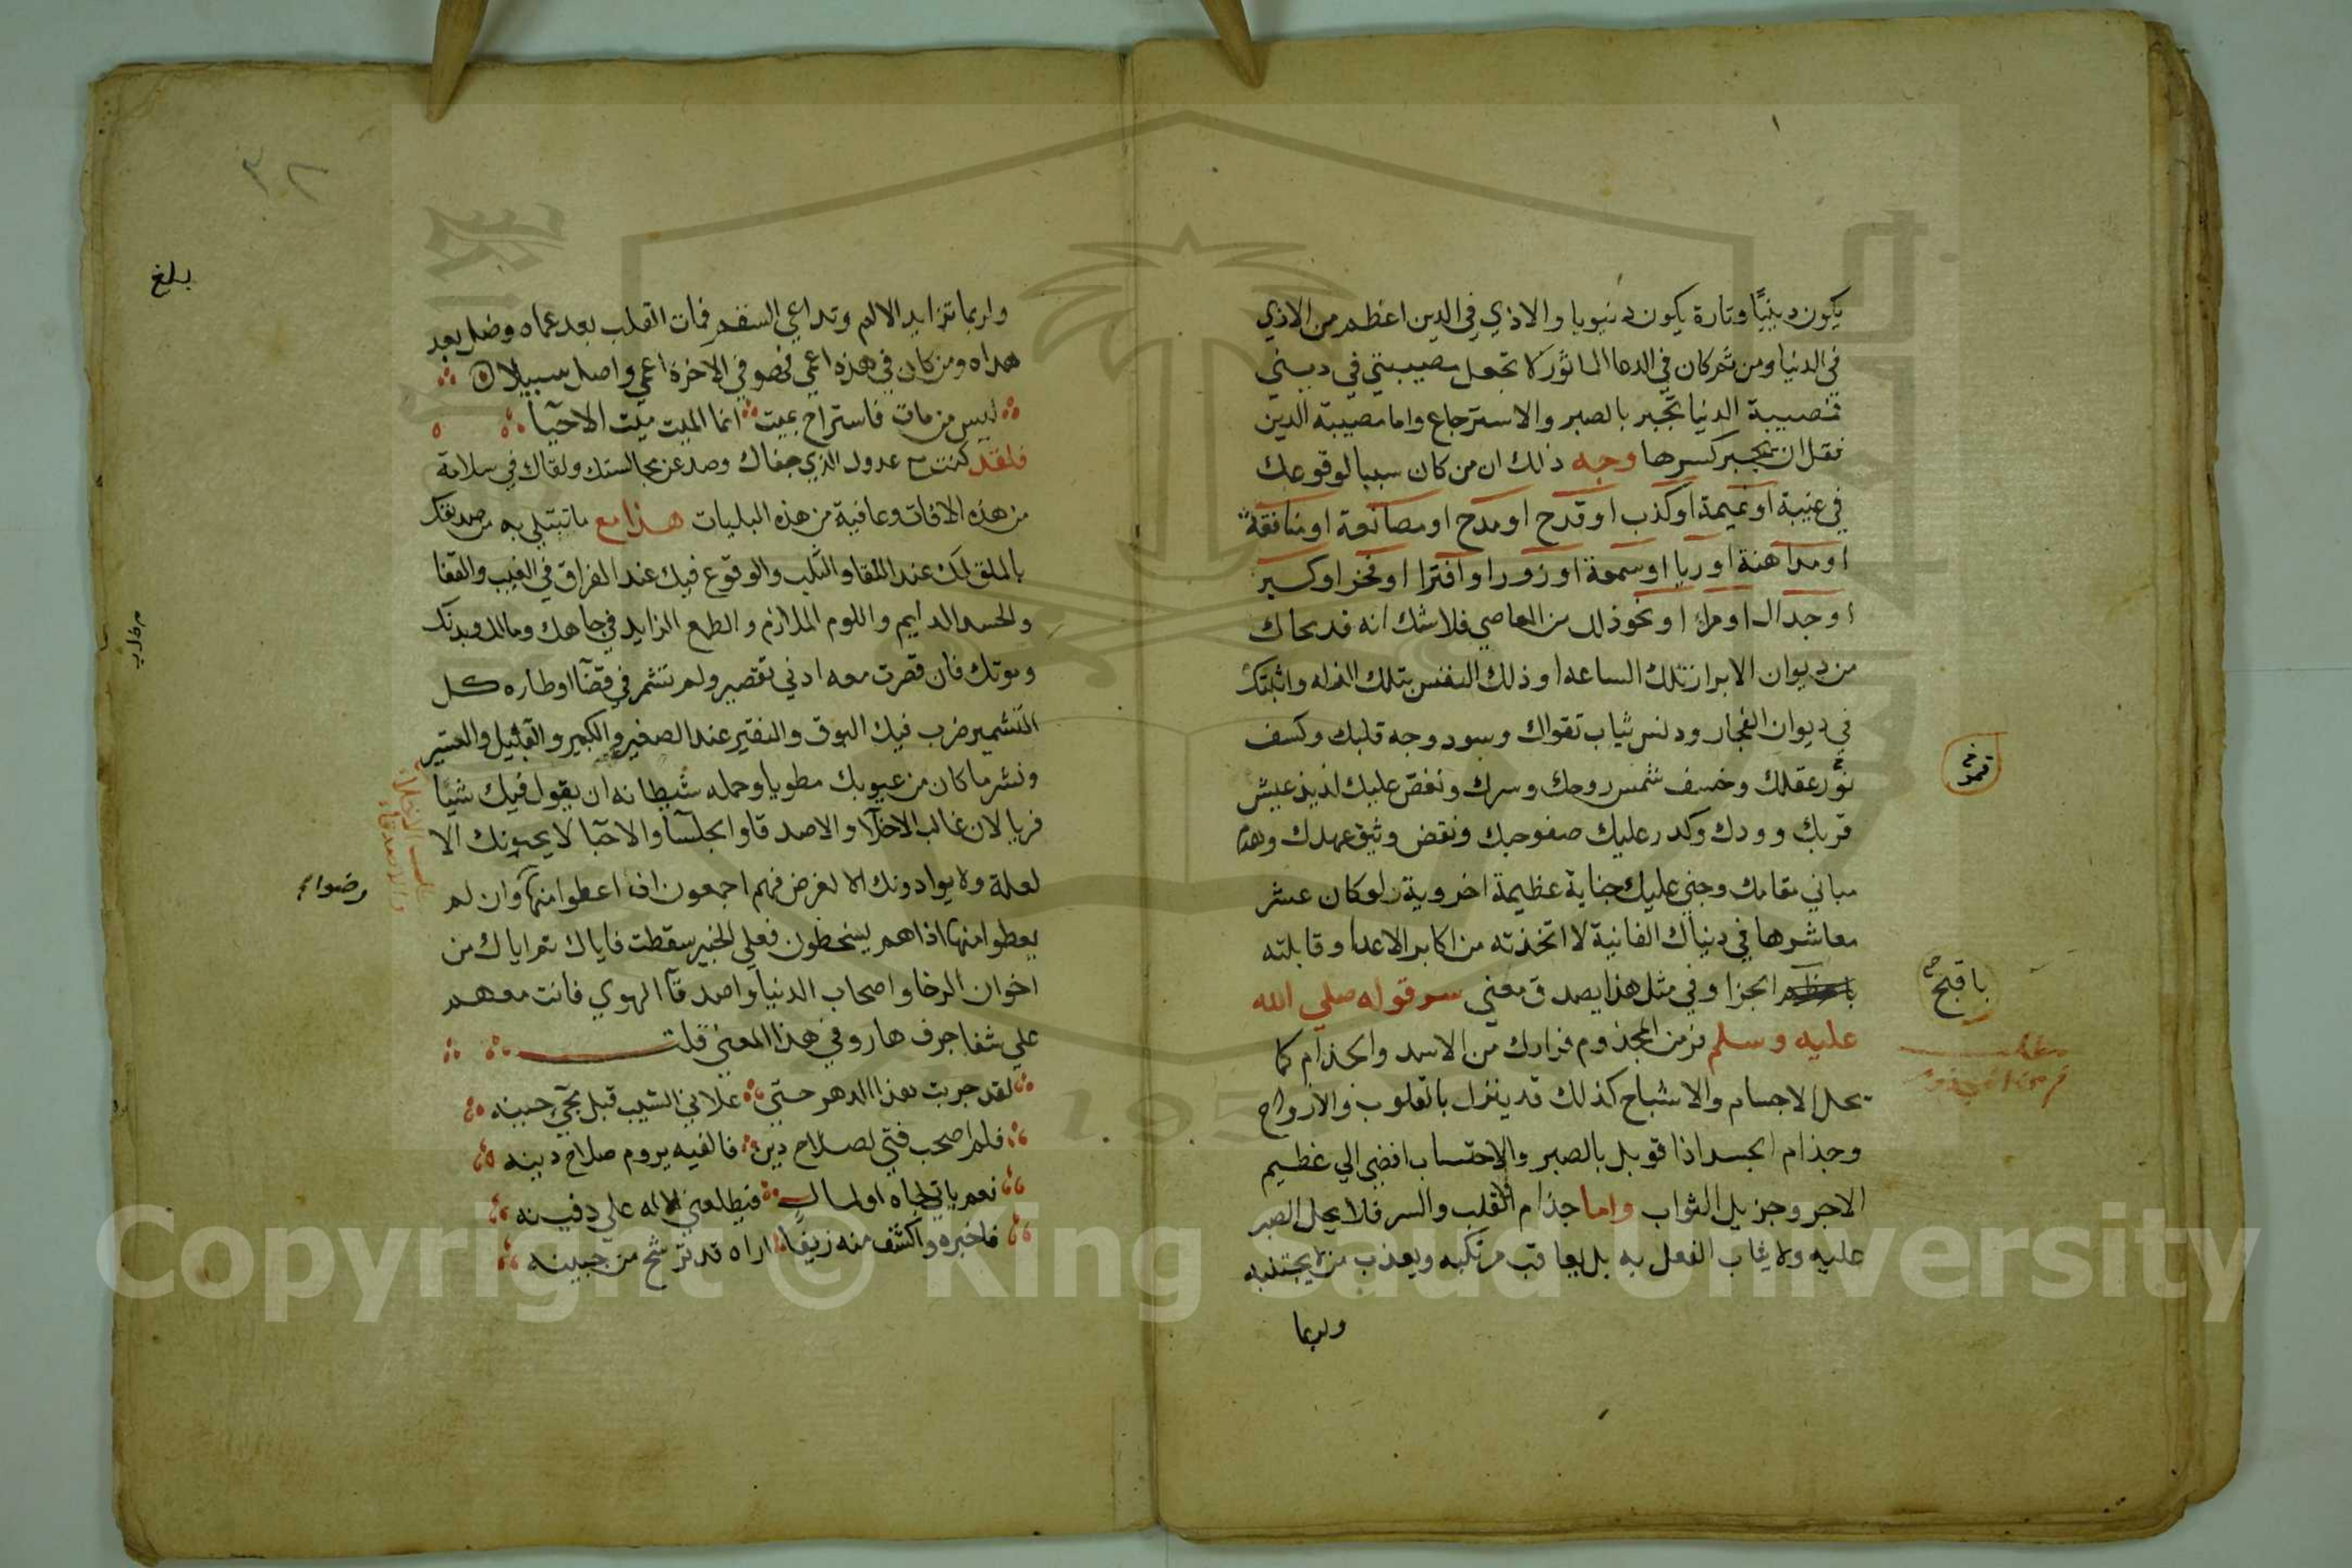 يكون دينيًا وتارة يكون دنيويا والاذي في الدين اعظم من الاذي
في الدنيا ومن ثم كان في الدعا الماثور لا تجعل مصيبتي في ديني
فمصيبة الدنيا تجبر بالصبر والاسترجاع واما مصيبة الدين
فقل ان يجبر كسرها وجه ذلك ان من كان سببا لوقوعك
في غيبة او نميمة او كذب او قدح او مدح او مصانعة او منافقة
او مداهنة او ريا او سمعة او زور او افترا او فخر او كسر
او جدال او مرا او نحو ذلك من المعاصي فلا شك انه قد محاك
من ديوان الابرار تلك الساعه او ذلك النفس بتلك واثبتك
في ديوان الفجار ودنس ثياب تقواك وسود وجه قلبك وكسف
نور عقلك وخسف شمس روحك وسرك ونغص عليك لذيذ عيش
قربك وودك وكدر عليك صفو حبك ونقض وثيق عهدك وهدم
مباني مقامك وجني عليك جناية عظيمة اخروية لو كان عشر
معاشرها في دنياك الفانية لا اتخذته من اكابر الاعدا وقابلته
باعظم الجزا وفي مثل هذا يصدق معني سر قوله صلي الله
عليه وسلم فر من المجذوم فرارك من الاسد والجذام كما
يحل الاجسام والاشباح كذلك قد ينزل بالقلوب والارواح
وجذام الجسد اذا قوبل بالصبر والاحتساب افضي الي عظيم
الاجر وجزيل الثواب واما جذام القلب والسر فلا يحل الصبر
عليه ولا يثاب الفعل به بل يعاقب مرتكبه ويعذب من لا يجتنبه
ولربما
قمر
باقبح
مطلب
فر من المجذوم
٣٢
بلغ
ولربما تزايد الالم وتداعي السقم فمات القلب بعد عماه وضل بعد
هداه ومن كان في هذه اعمي فهو في الاخرة اعمي واضل سبيلا
ليس من مات فاستراح بميت انما الميت ميّت الاحيآ
فلقد كنت مع عدوك الذي جفاك وصد عن مجالستك ولقاك في سلامة
من هذه الافات وعافية من هذه البليات هذا مع ما تبتلي به من صديقك
بالملق لك عند اللقا والثلب والوقوع فيك عند الفراق في الغيب والقفا
والحسد الدايم واللوم الملازم والطمع الزايد في جاهك ومالك وبدنك
وقوتك فان قصرت معه ادني تقصير ولم تتشمر في قضآ اوطاره كل
التشمير ضرب فيك البوق والنفير عند الصغير والكبير والقليل والعسير
ونشر ما كان من عيوبك مطويا وحمله شيطانه ان يقول فيك شيئا
فريا لان غالب الاخلآ والاصدقا والجلسآ والاحبا لا يحبونك الا
لعلة ولا يوادونك الا لغرض فهم اجمعون ان اعطوا منها رضوا وان لم
يعطوا منها اذا هم يسخطون فعلي الخبير سقطت فاياك ثم اياك من
اخوان الرخا واصحاب الدنيا واصدقآ الهوي فانت معهم
علي شفا جرف هار وفي هذا المعني قلت
لقد جربت هذا الدهر حتي علاني الشيب قبل مجي حينه
فلم اصحب فتي لصلاح دين فالفيه يروم صلاح دينه
نعم ياتي لجاه او لمال فيطلعني الاله علي دفينه
فاخبره واكشف منه زيفًا اراه قد ترشح من جبينه